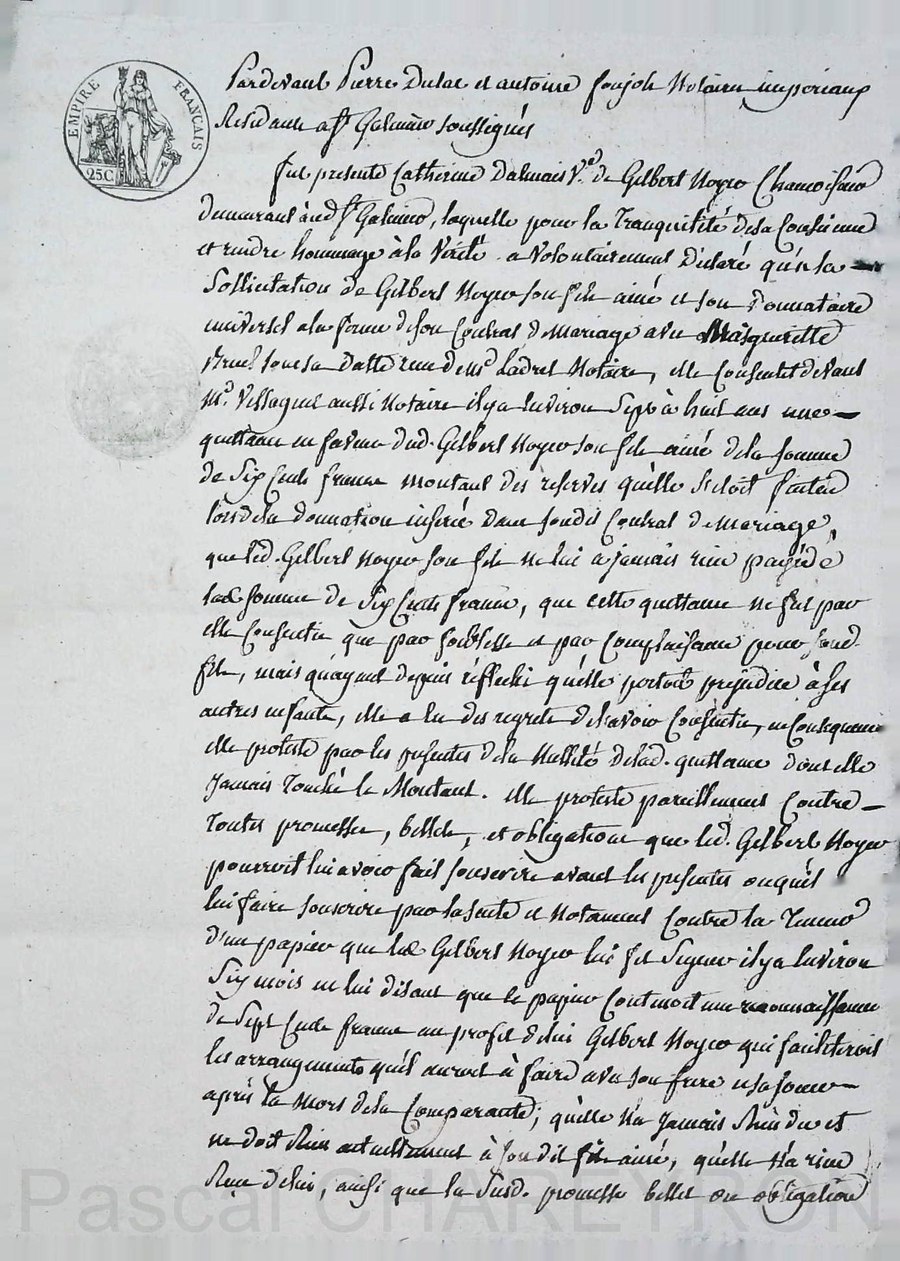 EMPIRE FRANÇAIS
25C
Pardevant Pierre Dulac et antoine notaires imperiaux
Residants a St Galmier soussignés
fut presente Catherine Dalmais Ve de Gilbert Noyer Chamoiseur
demeurant aud St Galmier, laquelle pour la tranquilité de sa Consience
et rendre hommage à la Vérité a volontairement Déclaré qu'a la
Sollicitation de Gilbert Noyer son fils ainé et son Donnataire
universel a la forme de son Contrat de Mariage avec Margueritte
sous sa datte reçu de Me Ladret Notaire, elle Consentit devant
Me aussi Notaire il y a Environ Sept à huit ans une
quittance en faveur dud. Gilbert Noyer son fils ainé de la somme
de Six Cents francs montant des réserves qu'elle s'etoit faites
lors de la donnation inserée dans sondit Contrat de Mariage,
que led. Gilbert Noyer son fils ne lui a jamais rien payé de
lad somme de Six Cents francs, que cette quittance ne fut par
elle Consentie que par foiblesse et par Complaisance pour sond.
fils, mais qu'ayant depuis réflechi qu'elle portoit préjudice à ses
autres enfants, elle a eu des regrets de l'avoir Consentie, en Consequence
elle proteste par les presentes de la Nullité de lad. quittance dont elle
Jamais touché le Montant. elle proteste pareillement Contre
toutes promesses, billets, et obligations que led. Gilbert Noyer
pourroit lui avoir fait souscrire avant les presentes ou qu'il
lui faire souscrire par la suite et Notament Contre la Teneur
d'un papier que led Gilbert Noyer lui fit Signer il y a Environ
Six mois en lui disant que le papier Contenoit une reconnaissance
de Sept Cents francs au profit de lui Gilbert Noyer qui faciliteroit
les arrangements qu'il auroit à faire avec son frere et sa soeur
après la Mort de la Comparante; qu'elle n'a Jamais Rien du et
ne doit Rien actuellement à son dit fils ainé, qu'elle n'a rien
Reçu de lui, ainsi que la Susd. promesse billet ou obligation
Pascal CHAREYRON